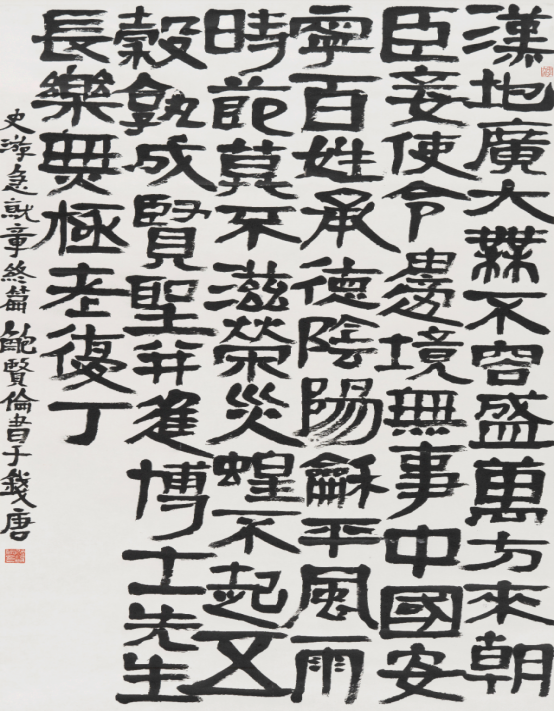 漢地廣大橆不容盛萬方來朝
臣妾使令邊境無事中國安
寧百姓承德陰陽龢平風雨
時節莫不滋榮災蝗不起五
穀孰成賢聖并進博士先生
長樂無極老復丁
史游急就章終篇 鮑賢倫書于錢唐